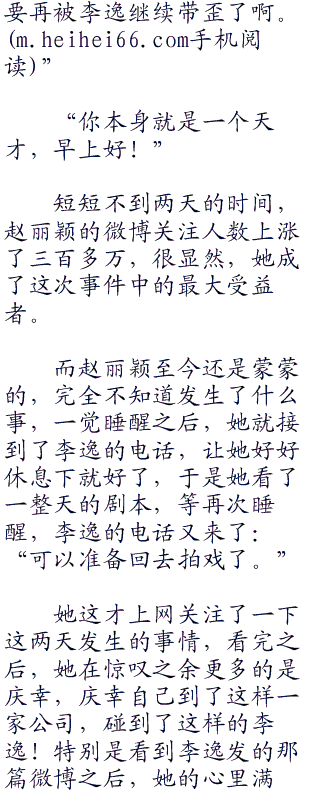 要再被李逸继续带歪了啊。
(m.heihei66.com手机阅
读)”
“你本身就是一个天
才，早上好！”
短短不到两天的时间，
赵丽颖的微博关注人数上涨
了三百多万，很显然，她成
了这次事件中的最大受益
者。
而赵丽颖至今还是蒙蒙
的，完全不知道发生了什么
事，一觉睡醒之后，她就接
到了李逸的电话，让她好好
休息下就好了，于是她看了
一整天的剧本，等再次睡
醒，李逸的电话又来了：
“可以准备回去拍戏了。”
她这才上网关注了一下
这两天发生的事情，看完之
后，她在惊叹之余更多的是
庆幸，庆幸自己到了这样一
家公司，碰到了这样的李
逸！特别是看到李逸发的那
篇微博之后，她的心里满